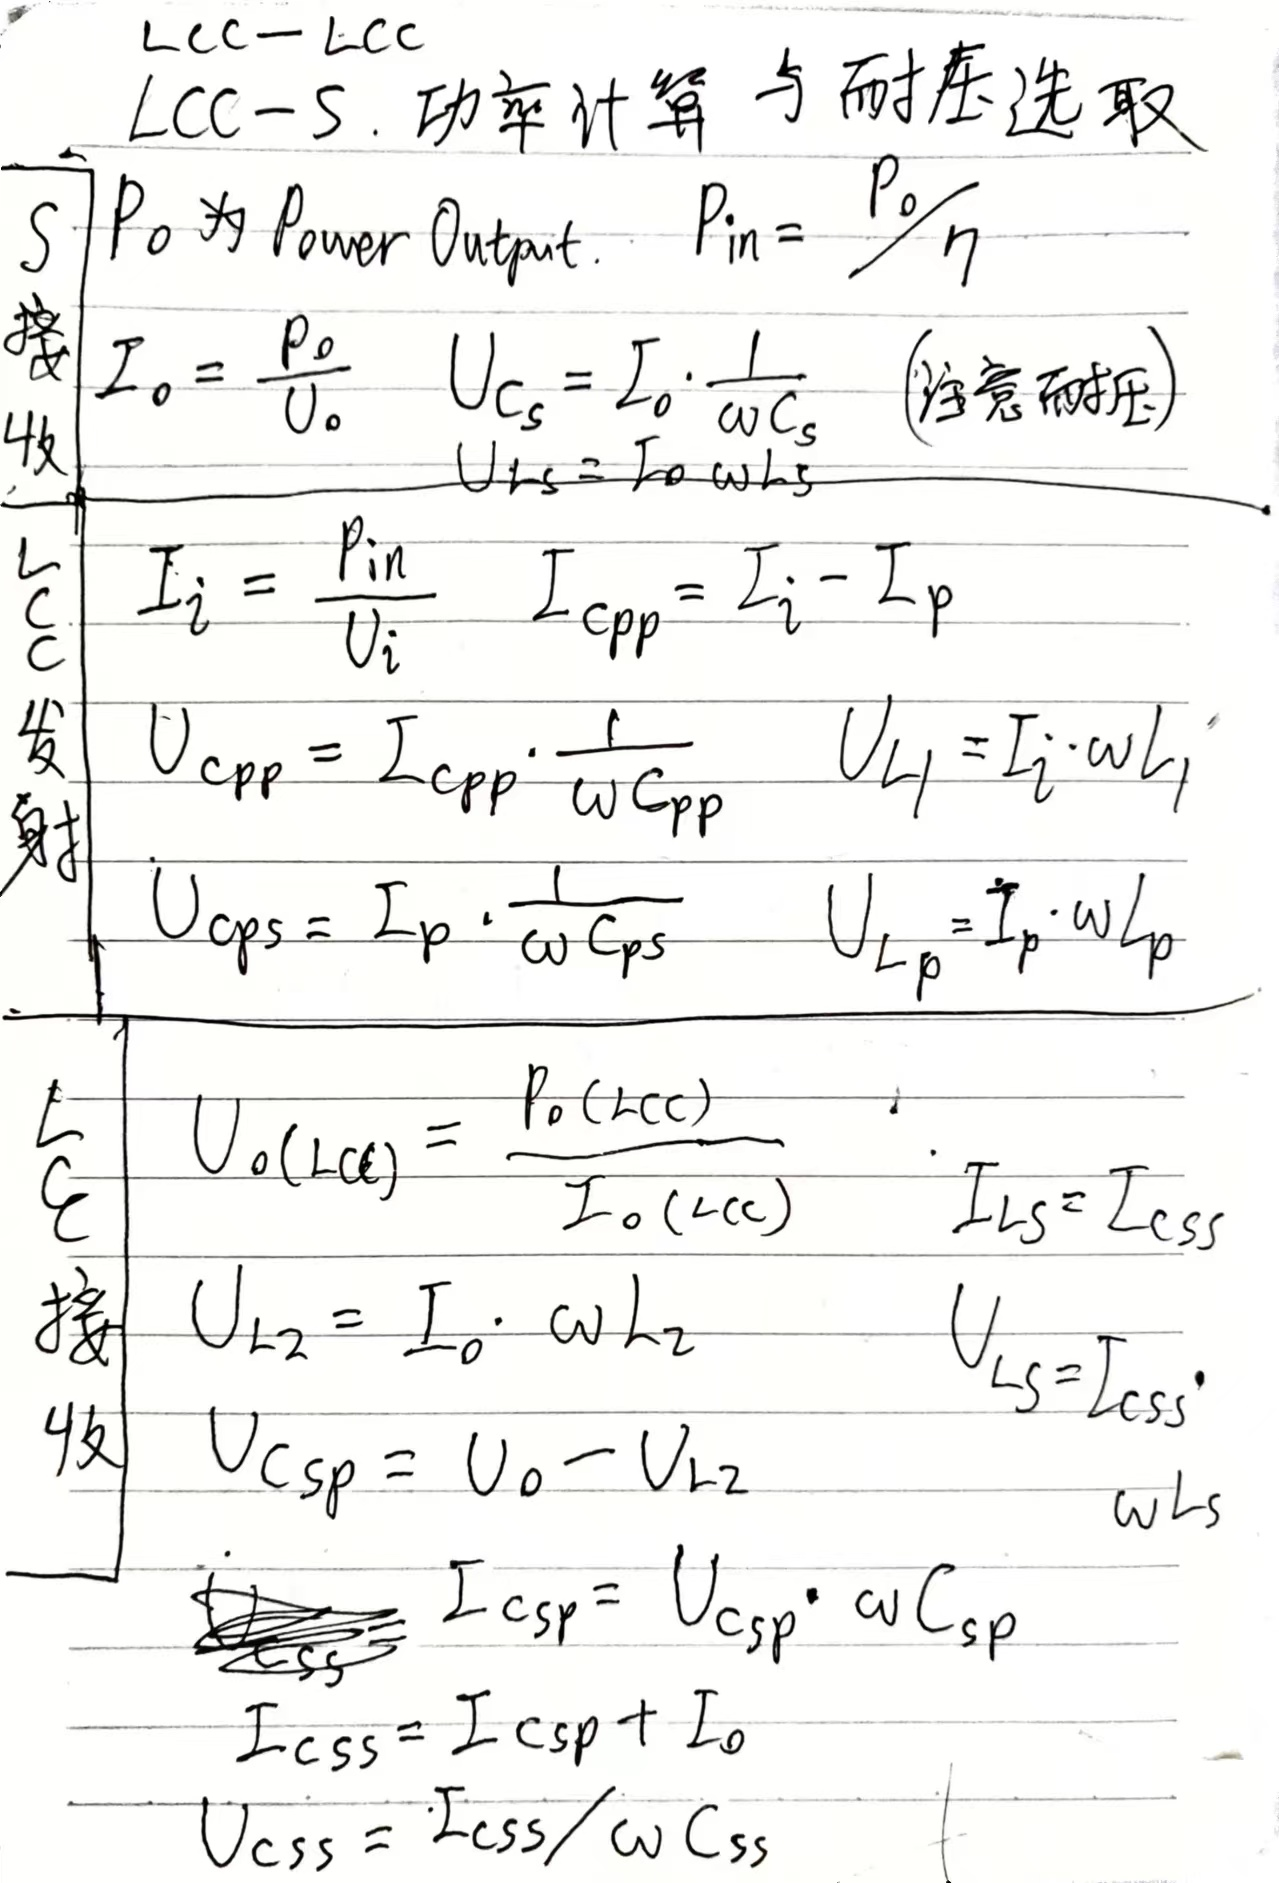 LCC-LCC
LCC-S. 功率计算 与 耐压选取
S接收
P₀ 为 Power Output. Pin = P₀/η
I₀ = P₀/U₀ U_Cs = I₀ · 1/ωCs (注意耐压)
U_Ls = I₀ ωLs
LCC发射
Ii = Pin/Ui Icpp = Ii - Ip
Ucpp = Icpp · 1/ωCpp U_L1 = Ii · ωL1
Ucps = Ip · 1/ωCps U_Lp = Ip · ωLp
LCC接收
U₀(LCC) = P₀(LCC)/I₀(LCC)
I_Ls = Icss
U_L2 = I₀ · ωL2
U_Ls = Icss · ωLs
Ucsp = U₀ - U_L2
Icsp = Ucsp · ωCsp
Icss = Icsp + I₀
Ucss = Icss/ωCss